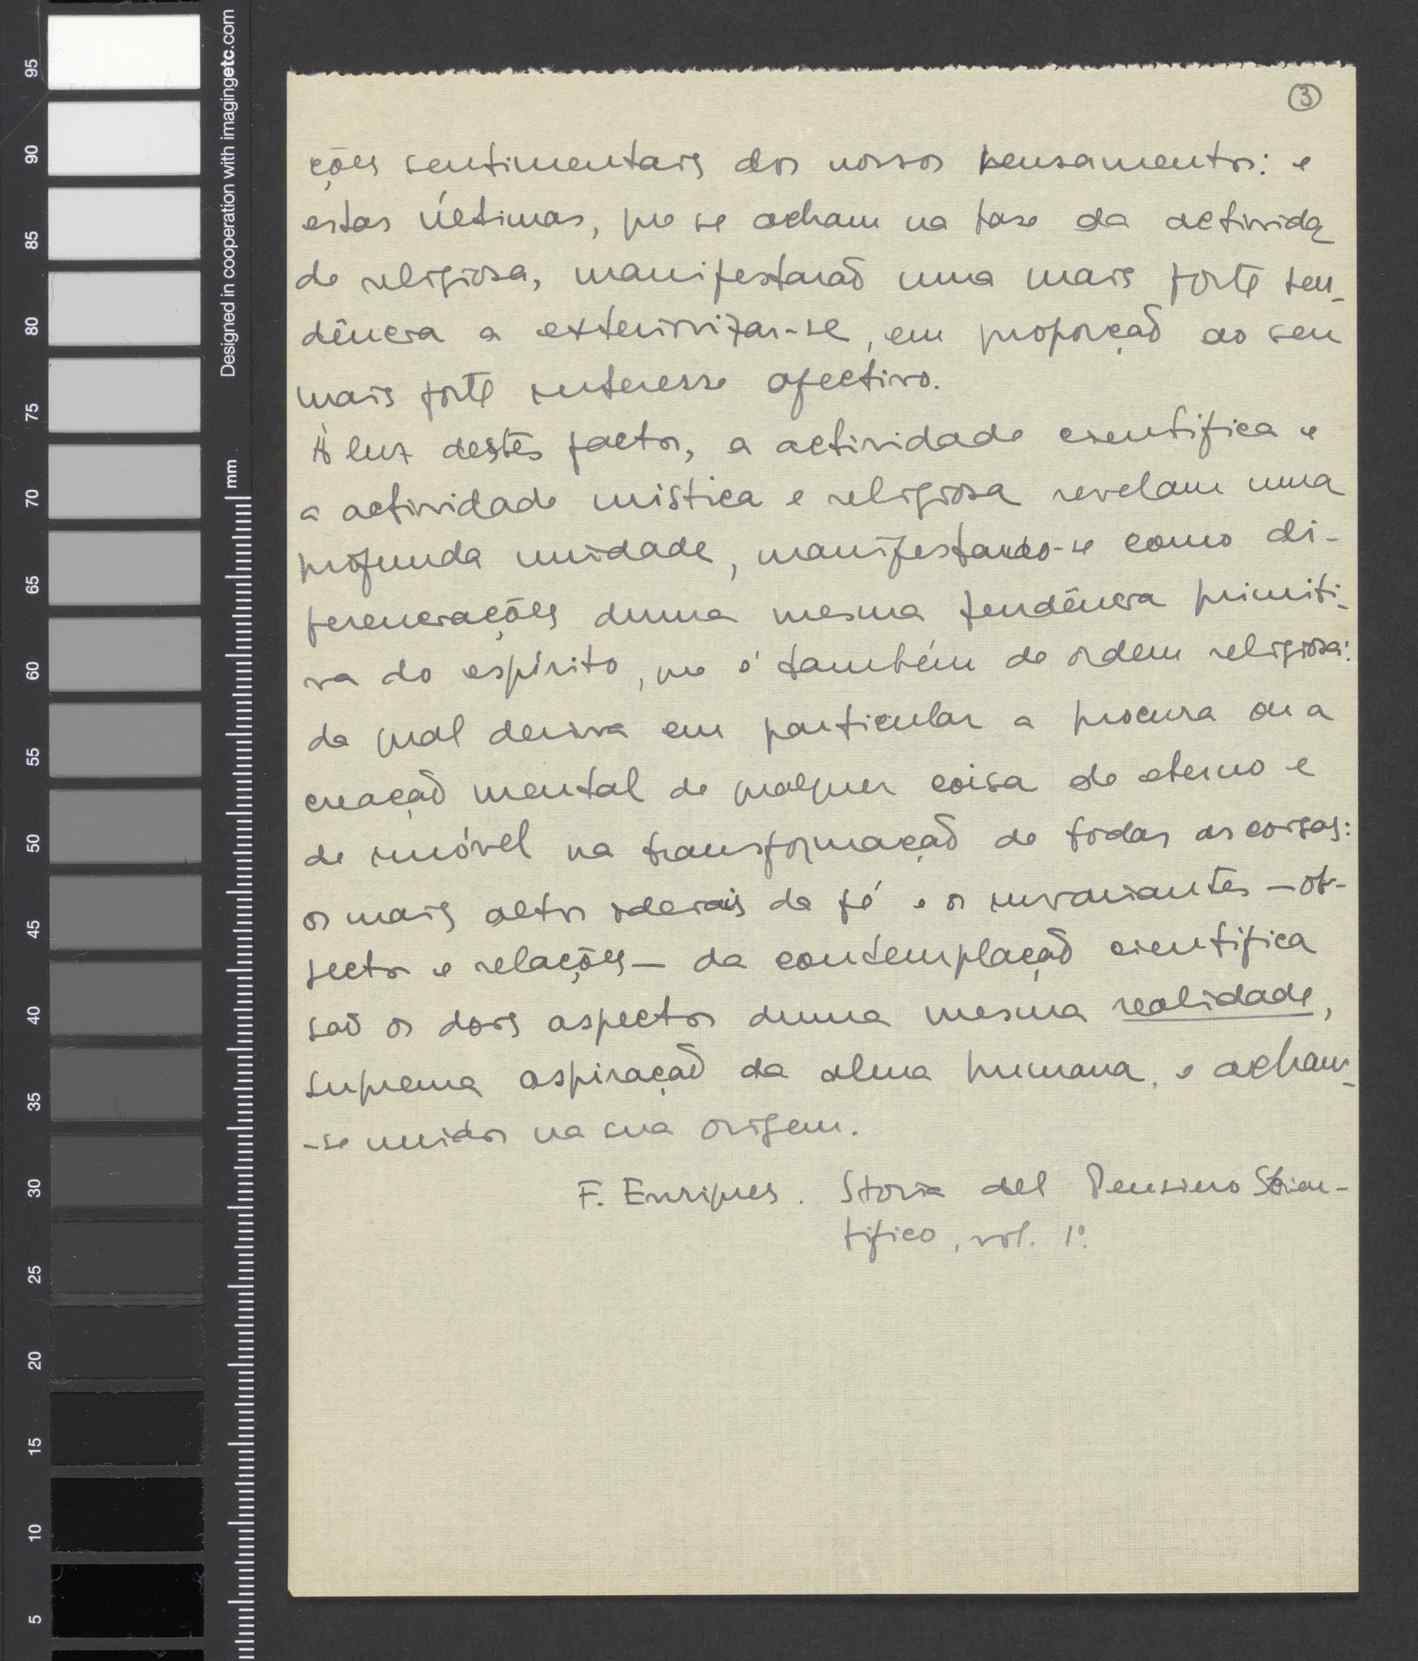 3
ções sentimentais dos nossos pensamentos: e
estas últimas, que se acham na base da activida
de religiosa, manifestarão uma mais forte ten-
dência a exteriorizar-se, em proporção ao seu
mais forte interesse afectivo.
À luz destes factos, a actividade científica e
a actividade mística e religiosa revelam uma
profunda unidade, manifestando-se como di-
ferenciações duma mesma tendência primiti-
va do espírito, que é também de ordem religiosa:
da qual deriva em particular a procura ou a
creação mental de qualquer coisa de eterno e
de imóvel na transformação de todas as coisas:
os mais altos ideais da fé e os invariantes — ob-
jectos e relações — da contemplação científica
são os dois aspectos duma mesma realidade,
suprema aspiração da alma humana, e acham-
-se unidos na sua origem.
F. Enriques. Storia del Pensiero Scien-
tifico, vol. 1º.
Designed in cooperation with imagingetc.com
mm
95
90
85
80
75
70
65
60
55
50
45
40
35
30
25
20
15
10
5